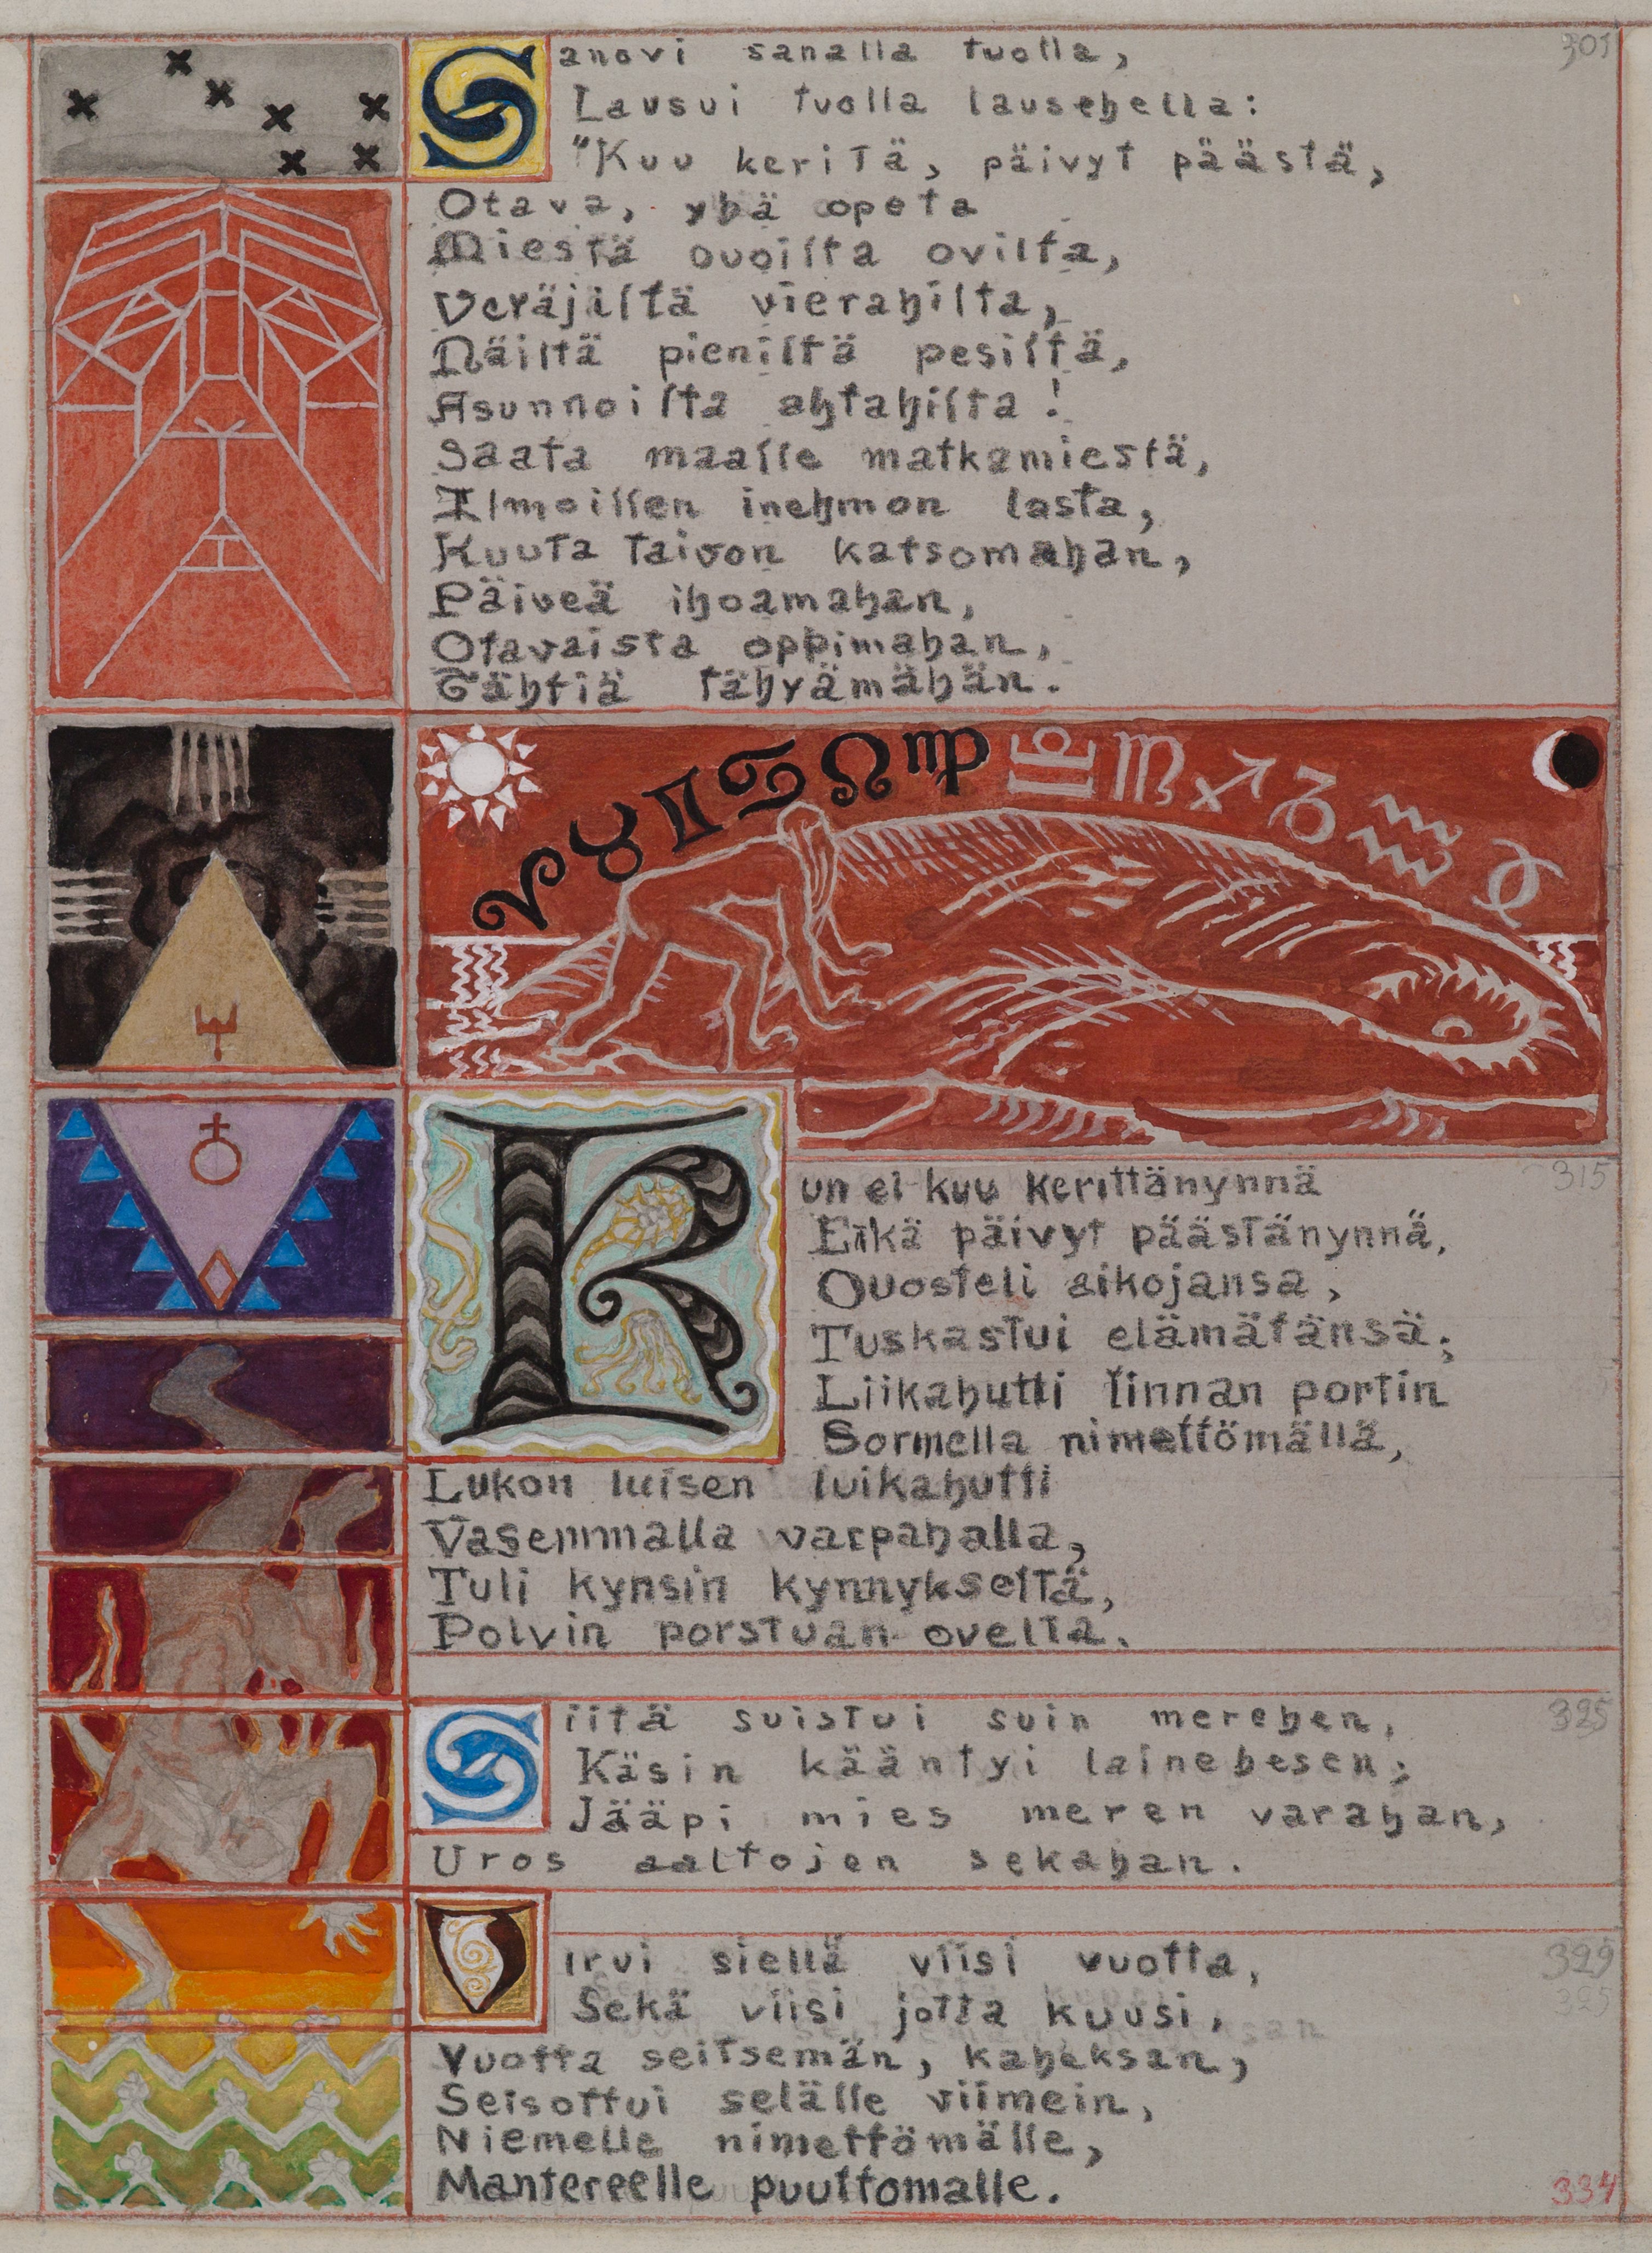 301
Sanovi sanalla tuolla,
Lausui tuolla lausehella:
"Kuu keritä, päivyt päästä,
Otava, yhä opeta
Miestä ouoilta ovilta,
Veräjiltä vierahilta,
Näiltä pieniltä pesiltä,
Asunnoilta ahtahilta!
Saata maalle matkamiestä,
Ilmoillen inehmon lasta,
Kuuta taivon katsomahan,
Päiveä ihoamahan,
Otavaista oppimahan,
Tähtiä tähyämähän.
315
Kun ei kuu kerittänynnä
Eikä päivyt päästänynnä,
Ouosteli aikojansa,
Tuskastui elämätänsä;
Liikahutti linnan portin
Sormella nimettömällä,
Lukon luisen luikahutti
Vasemmalla varpahalla,
Tuli kynsin kynnykseltä,
Polvin porstuan ovelta.
325
Siitä suistui suin merehen,
Käsin kääntyi lainehesen;
Jääpi mies meren varahan,
Uros aaltojen sekahan.
329
325
Virui siellä viisi vuotta,
Sekä viisi jotta kuusi,
Vuotta seitsemän, kaheksan,
Seisottui selälle viimein,
Niemelle nimettömälle,
Mantereelle puuttomalle.
334